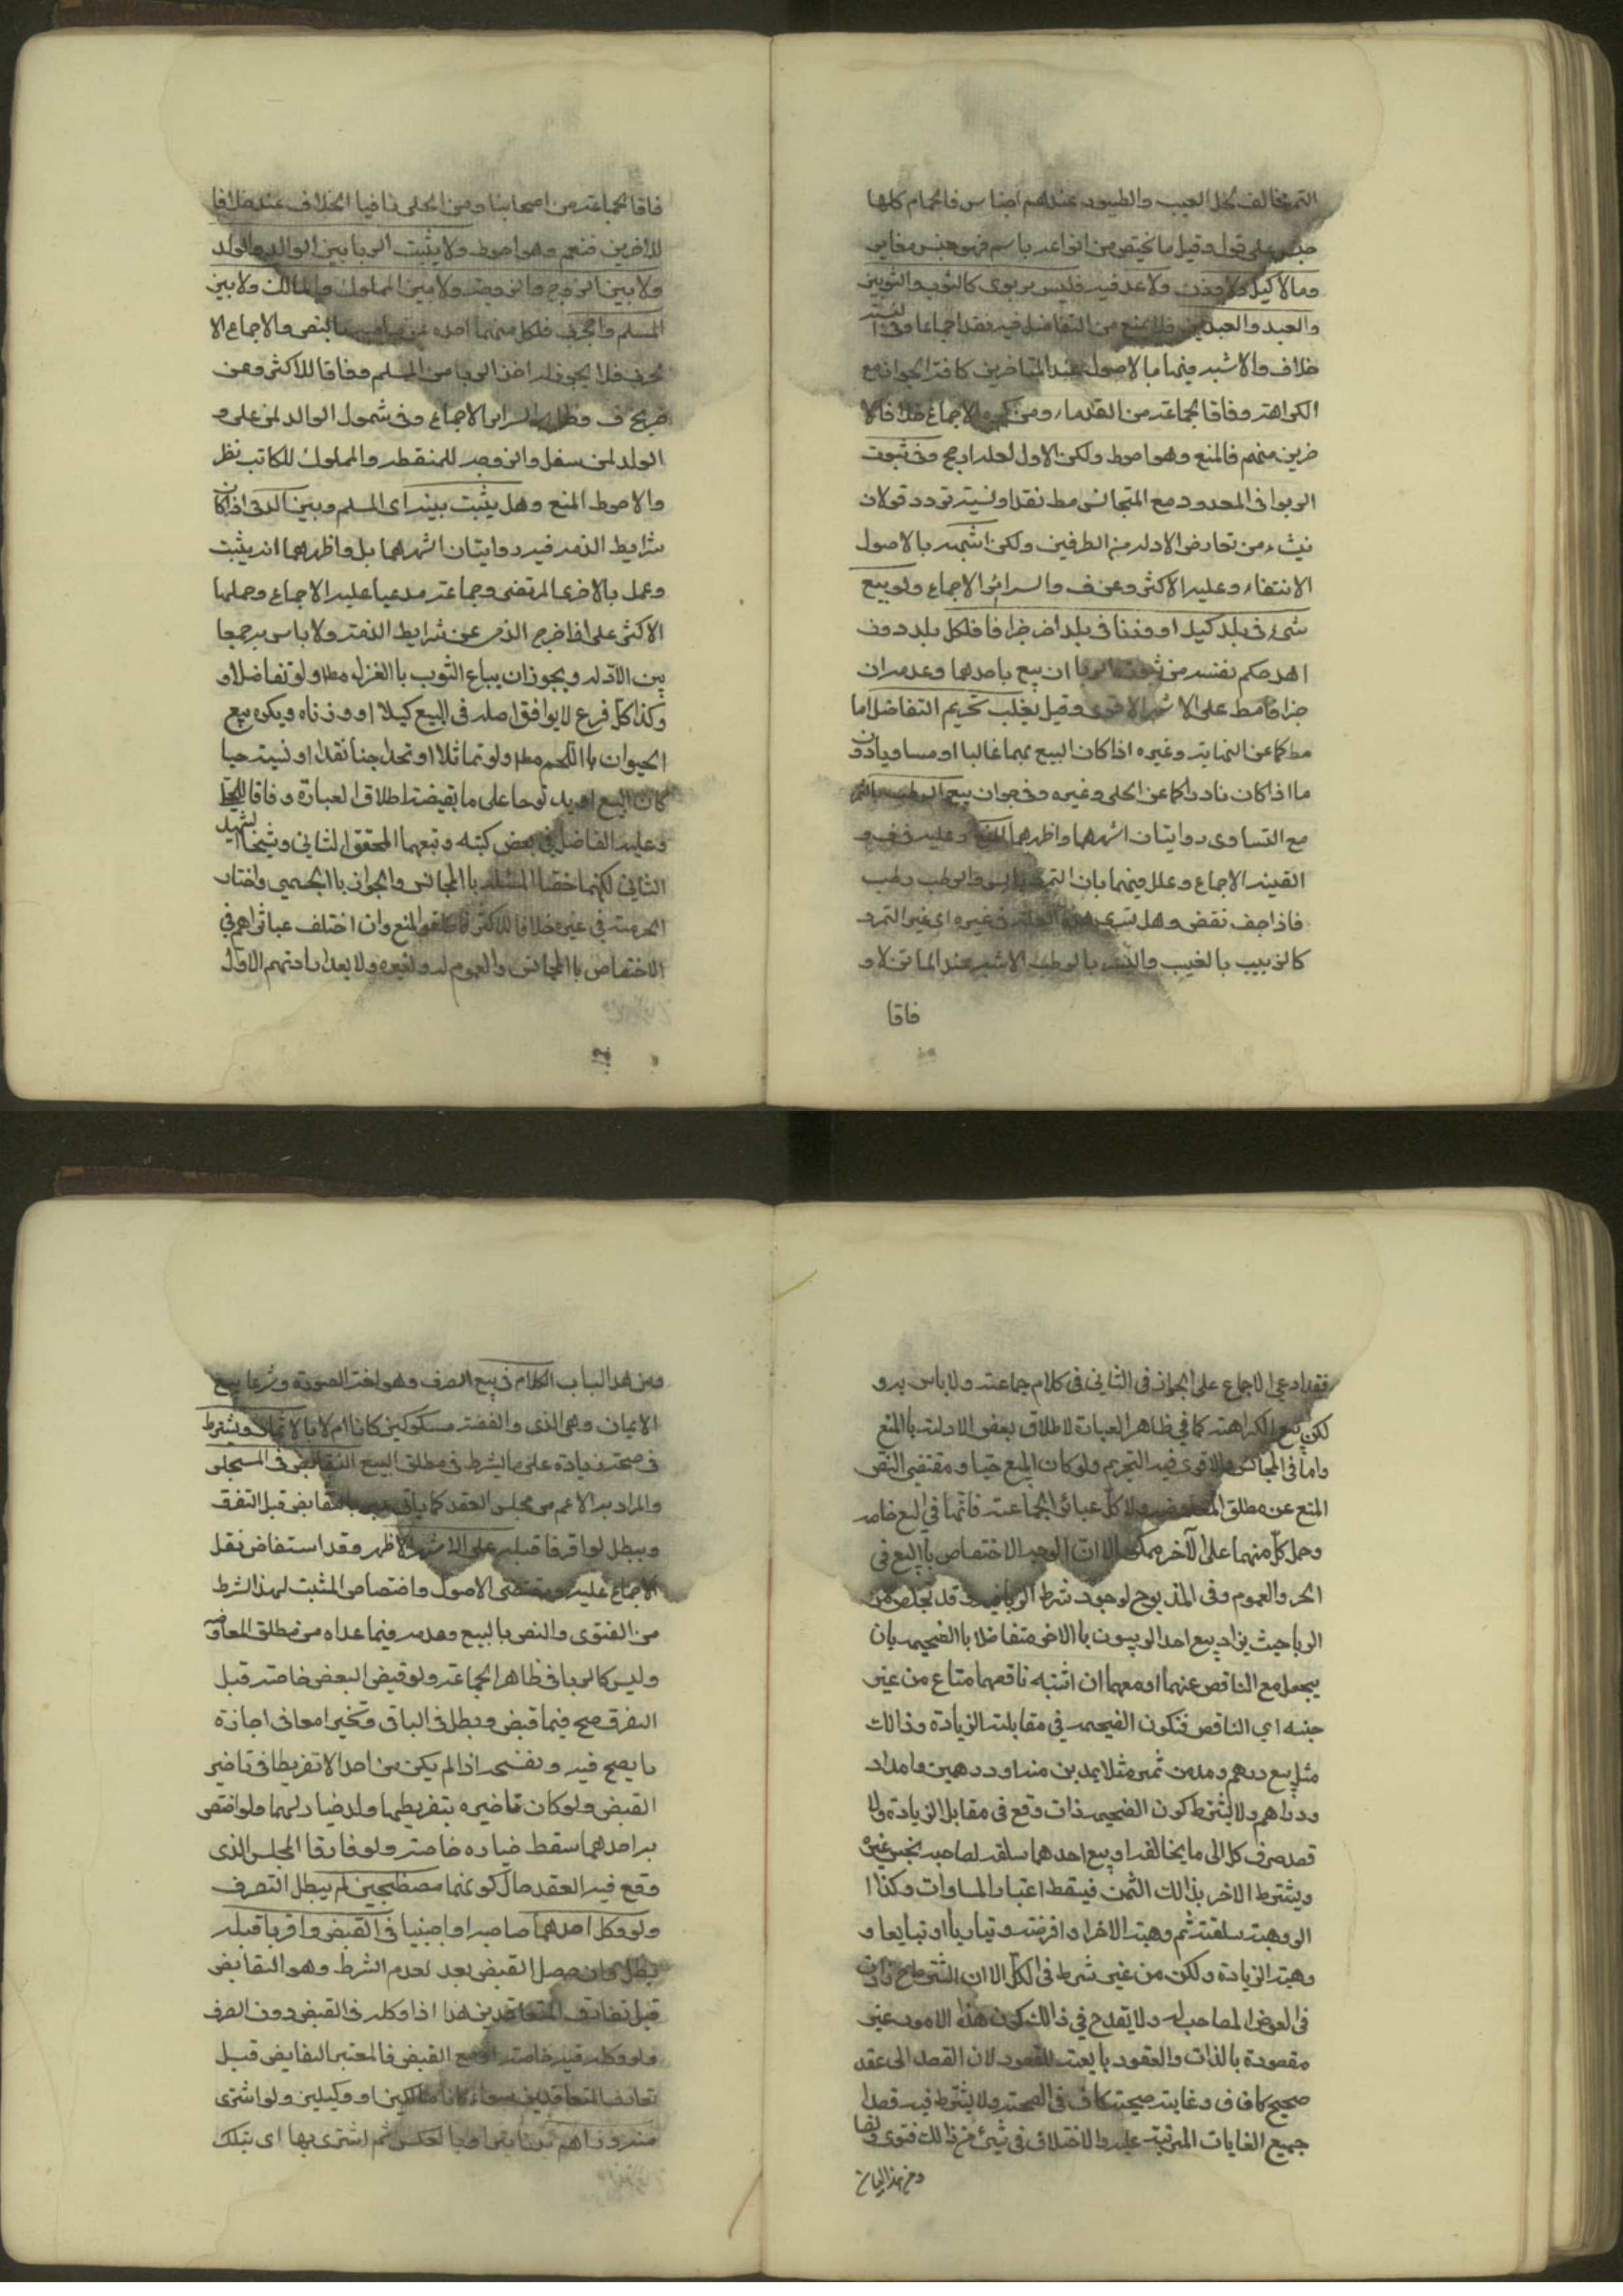 التمر مخالف لخل العنب والطيور عندهم اجناس فالحمام كلها
جنس على قول وقيل ما يختص من انواعه باسم فهو جنس مغاير
وما لا كيل ولا وزن ولا عد فيه فليس بربوى كالثوب والثوبين
والعبد والعبدين فلا يمنع من التفاضل فيه نقدا اجماعا وفى النسية
خلاف والاشبه فيها بالاصول عند المتاخرين كافة الجواز مع
الكراهة وفاقا لجماعة من القدماء ومن الاجماع خلافا لا
خرين منهم فالمنع وهو احوط ولكن الاول لعله ارجح وفى ثبوت
الربوا فى المعدود مع المتجانس مط نقدا ونسية تردد وقولان
ينشاء من تعارض الادلة من الطرفين ولكن اشبهه بالاصول
الانتفاء وعليه الاكثر وعن ف والسرائر الاجماع ولو بيع
شىء فى بلد كيلا او وزنا فى بلد اخر جزافا فلكل بلد دون
اهله حكم نفسه من ثبوت الربا ان بيع باحدهما وعدمه ان
جزافا مط على الاشهر الاقوى وقيل يغلب تحريم التفاضل اما
مط كما عن النهاية وغيره اذا كان البيع بهما غالبا او مساويا دون
ما اذا كان نادرا كما عن الحلى وغيره وفى جواز بيع الرطب بالتمر
مع التساوى روايتان اشهرهما واظهرهما المنع وعليه فى ف و
الغنية الاجماع وعلل فيهما بان التمر يابس والرطب رطب
فاذا جف نقص وهل يسرى هذه العلة فى غيره اى غير التمر و
كالزبيب بالعنب والتمر بالرطب الاشبه عند الماتن لا و
فاقا
فاقا لجماعة من اصحابنا ومن الحلى نافيا الخلاف عنه خلافا
للاخرين فنعم وهو احوط ولا يثبت الربا بين الوالد والولد
ولا بين الزوج والزوجة ولا بين المملوك والمالك ولا بين
المسلم والحربى فلكل منهما اخذه من صاحبه بالنص والاجماع الا
لحربى فلا يجوز له اخذ الربا من المسلم وفاقا للاكثر وعن
صريح ف وظاهر السرائر الاجماع وفى شمول الوالد لمن على و
الولد لمن سفل والزوجة للمنقطعة والمملوك للكاتب نظر
والاحوط المنع وهل يثبت بينه اى المسلم وبين الذمى اذا كان
شرايط الذمة فيه روايتان اشهرهما بل واظهرهما انه يثبت
وعمل بالاخرى المرتضى وجماعة مدعيا عليه الاجماع وحملها
الاكثر على اذا خرج الذمى عن شرايط الذمة ولا باس به جمعا
بين الادلة ويجوز ان يباع الثوب با الغزل مطا ولو تفاضلا و
وكذا كل فرع لا يوافق اصله فى البيع كيلا او وزناه ويكره بيع
الحيوان با اللحم مطا ولو تماثلا او تحدا جنسا نقدا او نسية حيا
كان البيع او يذبوحا على ما يقيضه اطلاق العبارة وفاقا للحلى
وعليه الفاضل فى بعض كتبه وتبعهما المحقق الثانى وشيخنا الشهيد
الثانى لكنهما خصا المسئلة با المجانس والجواز با الجسمى واختار
الحرمة فى غيره خلافا للاكثر فاطلقوا المنع وان اختلف عباراهم فى
الاختصاص با المجانس والعموم له ولغيره ولا يعد ارادتهم الاول
فقد ادعى الاجماع على الجواز فى الثانى فى كلام جماعة ولا باس به و
لكن مع الكراهة كما فى ظاهر العبارة لاطلاق بعض الادلة با المنع
واما فى المجانس فالاقوى فيه التحريم ولو كان المبيع حيا ومقتضى النص
المنع عن مطلق المعاوضة ولا كل عبائر الجماعة فانها فى البيع خاصة
وحمل كل منهما على الاخر ممكن الا ان الوجه الاختصاص با البيع فى
الحى والعموم وفى المذبوح لوجود شرط الربا فيه وقد يخلص من
الربا حيث يراد بيع احد الربيون با الاخر متفاضلا با الضميمة بان
يجعل مع الناقص عنهما او معهما ان اشتبه ناقصهما متاع من غير
جنسه اى الناقص فتكون الضميمة فى مقابلة الزيادة وذالك
مثل بيع درهم ومد من تمر مثلا بمدين منه او درهمين وامداد
ودراهم ولا يشترط كون الضميمة ذات وقع فى مقابل الزيادة ولا
قصد صرف كل الى ما يخالفه او بيع احدهما سلعته لصاحبه بجنس غيره
ويشترط الاخر بذالك الثمن فيسقط اعتبار المساوات وكذا ا
الو وهبته سلعته ثم وهبته الاخر او اقرضته وتباريا او تبايعا و
وهبته الزيادة ولكن من غير شرط فى الكل الا ان
فى العوض المصاحب له ولا يقدح فى ذالك كون هذه الامور غير
مقصودة بالذات والعقود تابعة للقصود لان القصد الى عقد
صحيح كاف فى وغاية صحيحة كاف فى الصحة ولا يشترط فيه قصد
جميع الغايات المترتبة عليه والاختلاف فى شىء من ذالك فتوى ونصا
ومن هذا الباب
ومن هذا الباب الكلام فى بيع الصرف وهو لغة الصوت وشرعا بيع
الاثمان وهى الذهب والفضة مسكوكين كانا ام لا بالاثمان ويشترط
فى صحته زيادة على ما يشرط فى مطلق البيع التقابض فى المجلس
والمراد به الاعم من مجلس العقد كما ياتى التقابض قبل التفرق
ويبطل لو افترقا قبله على الاشهر الاظهر وقد استفاض نقل
الاجماع عليه ومقتضى الاصول واختصاص المثبت لهذا الشرط
من الفتوى والنص بالبيع وعدمه فيما عداه من مطلق المعاوضه
وليس كالربا فى ظاهر الجماعة ولو قبض البعض خاصة قبل
التفرق صح فيما قبض وبطل فى الباقى وتخيرا معا فى اجازة
ما يصح فيه وفسخه اذا لم يكن من احدالا تفريطا فى تاخير
القبض ولو كان تاخيره بتفريطهما ولا خيار لهما ولو اختص
به احدهما سقط خياره خاصة ولو فارقا المجلس الذى
وقع فيه العقد حال كونهما مصطحبين لم يبطل التصرف
ولو وكل احدهما صاحبه او اجنبيا فى القبض وافترقا قبله
بطل وان حصل القبض بعد لعدم الشرط وهو التقابض
قبل تفارق المتعاقدين هذا اذا وكله فى القبض دون الصرف
ولو وكله فيه خاصة او مع القبض فالمعتبر التقابض قبل
تفارق المتعاقدين سواء كانا مالكين او وكيلين ولو اشترى
منه دراهم بدنانير او بالعكس ثم اشترى بها اى بتلك